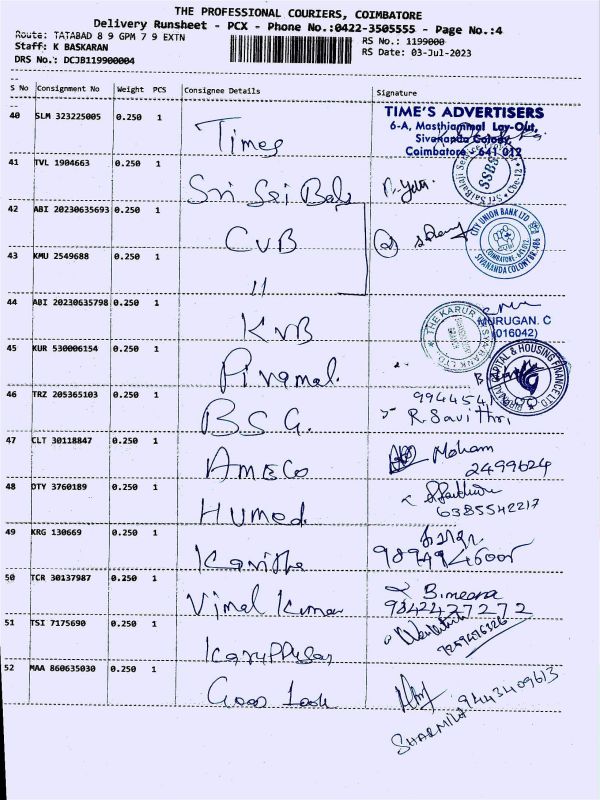 THE PROFESSIONAL COURIERS, COIMBATORE
Delivery Runsheet - PCX - Phone No.:0422-3505555 - Page No.:4
Route: TATABAD 8 9 GPM 7 9 EXTN
RS No.: 1199000
Staff: K BASKARAN
RS Date: 03-Jul-2023
DRS No.: DCJB119900004
S No Consignment No Weight PCS Consignee Details Signature
40 SLM 323225005 0.250 1 Times
TIME'S ADVERTISERS
6-A, Masthiammal Lay-Out,
Sivananda Colony,
Coimbatore - 641 012
41 TVL 1904663 0.250 1 Sri Sai Balaji
SSBS
Cbe-12
42 ABI 20230635693 0.250 1 CUB
CITY UNION BANK LTD
COIMBATORE-641012
SIVANANDA COLONY BR.486
43 KMU 2549688 0.250 1 11
44 ABI 20230635798 0.250 1 KVB
THE KARUR VYSYA BANK LTD
MURUGAN. C
(016042)
45 KUR 530006154 0.250 1 Piramal
CAPITAL & HOUSING FINANCE LTD
46 TRZ 205365103 0.250 1 BSG.
R Savithri
47 CLT 30118847 0.250 1 AMECO
Moham
2499624
48 DTY 3760189 0.250 1 Humed
6385542217
49 KRG 130669 0.250 1 Kavitha
50 TCR 30137987 0.250 1 Vimal Kumar
B.meera
9342427272
51 TSI 7175690 0.250 1 Karuppusamy
Venkatesh
52 MAA 860635030 0.250 1 Good Look
SHARMILA 9443409613